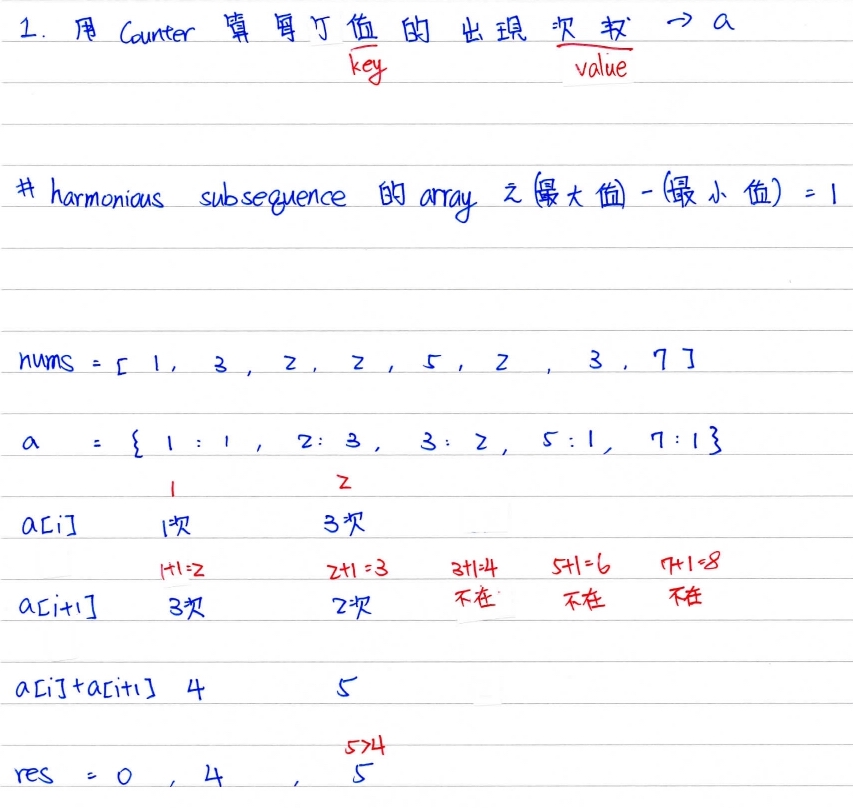 1. 用 Counter 算每个值的出現次数 → a
key value
# harmonious subsequence 的 array 之(最大值)-(最小值) = 1
nums = [ 1, 3, 2, 2, 5, 2, 3, 7 ]
a = { 1 : 1, 2 : 3, 3 : 2, 5 : 1, 7 : 1 }
1 2
a[i] 1次 3次
1+1=2 2+1=3 3+1=4 5+1=6 7+1=8
a[i+1] 3次 2次 不在 不在 不在
a[i]+a[i+1] 4 5
5>4
res = 0, 4, 5